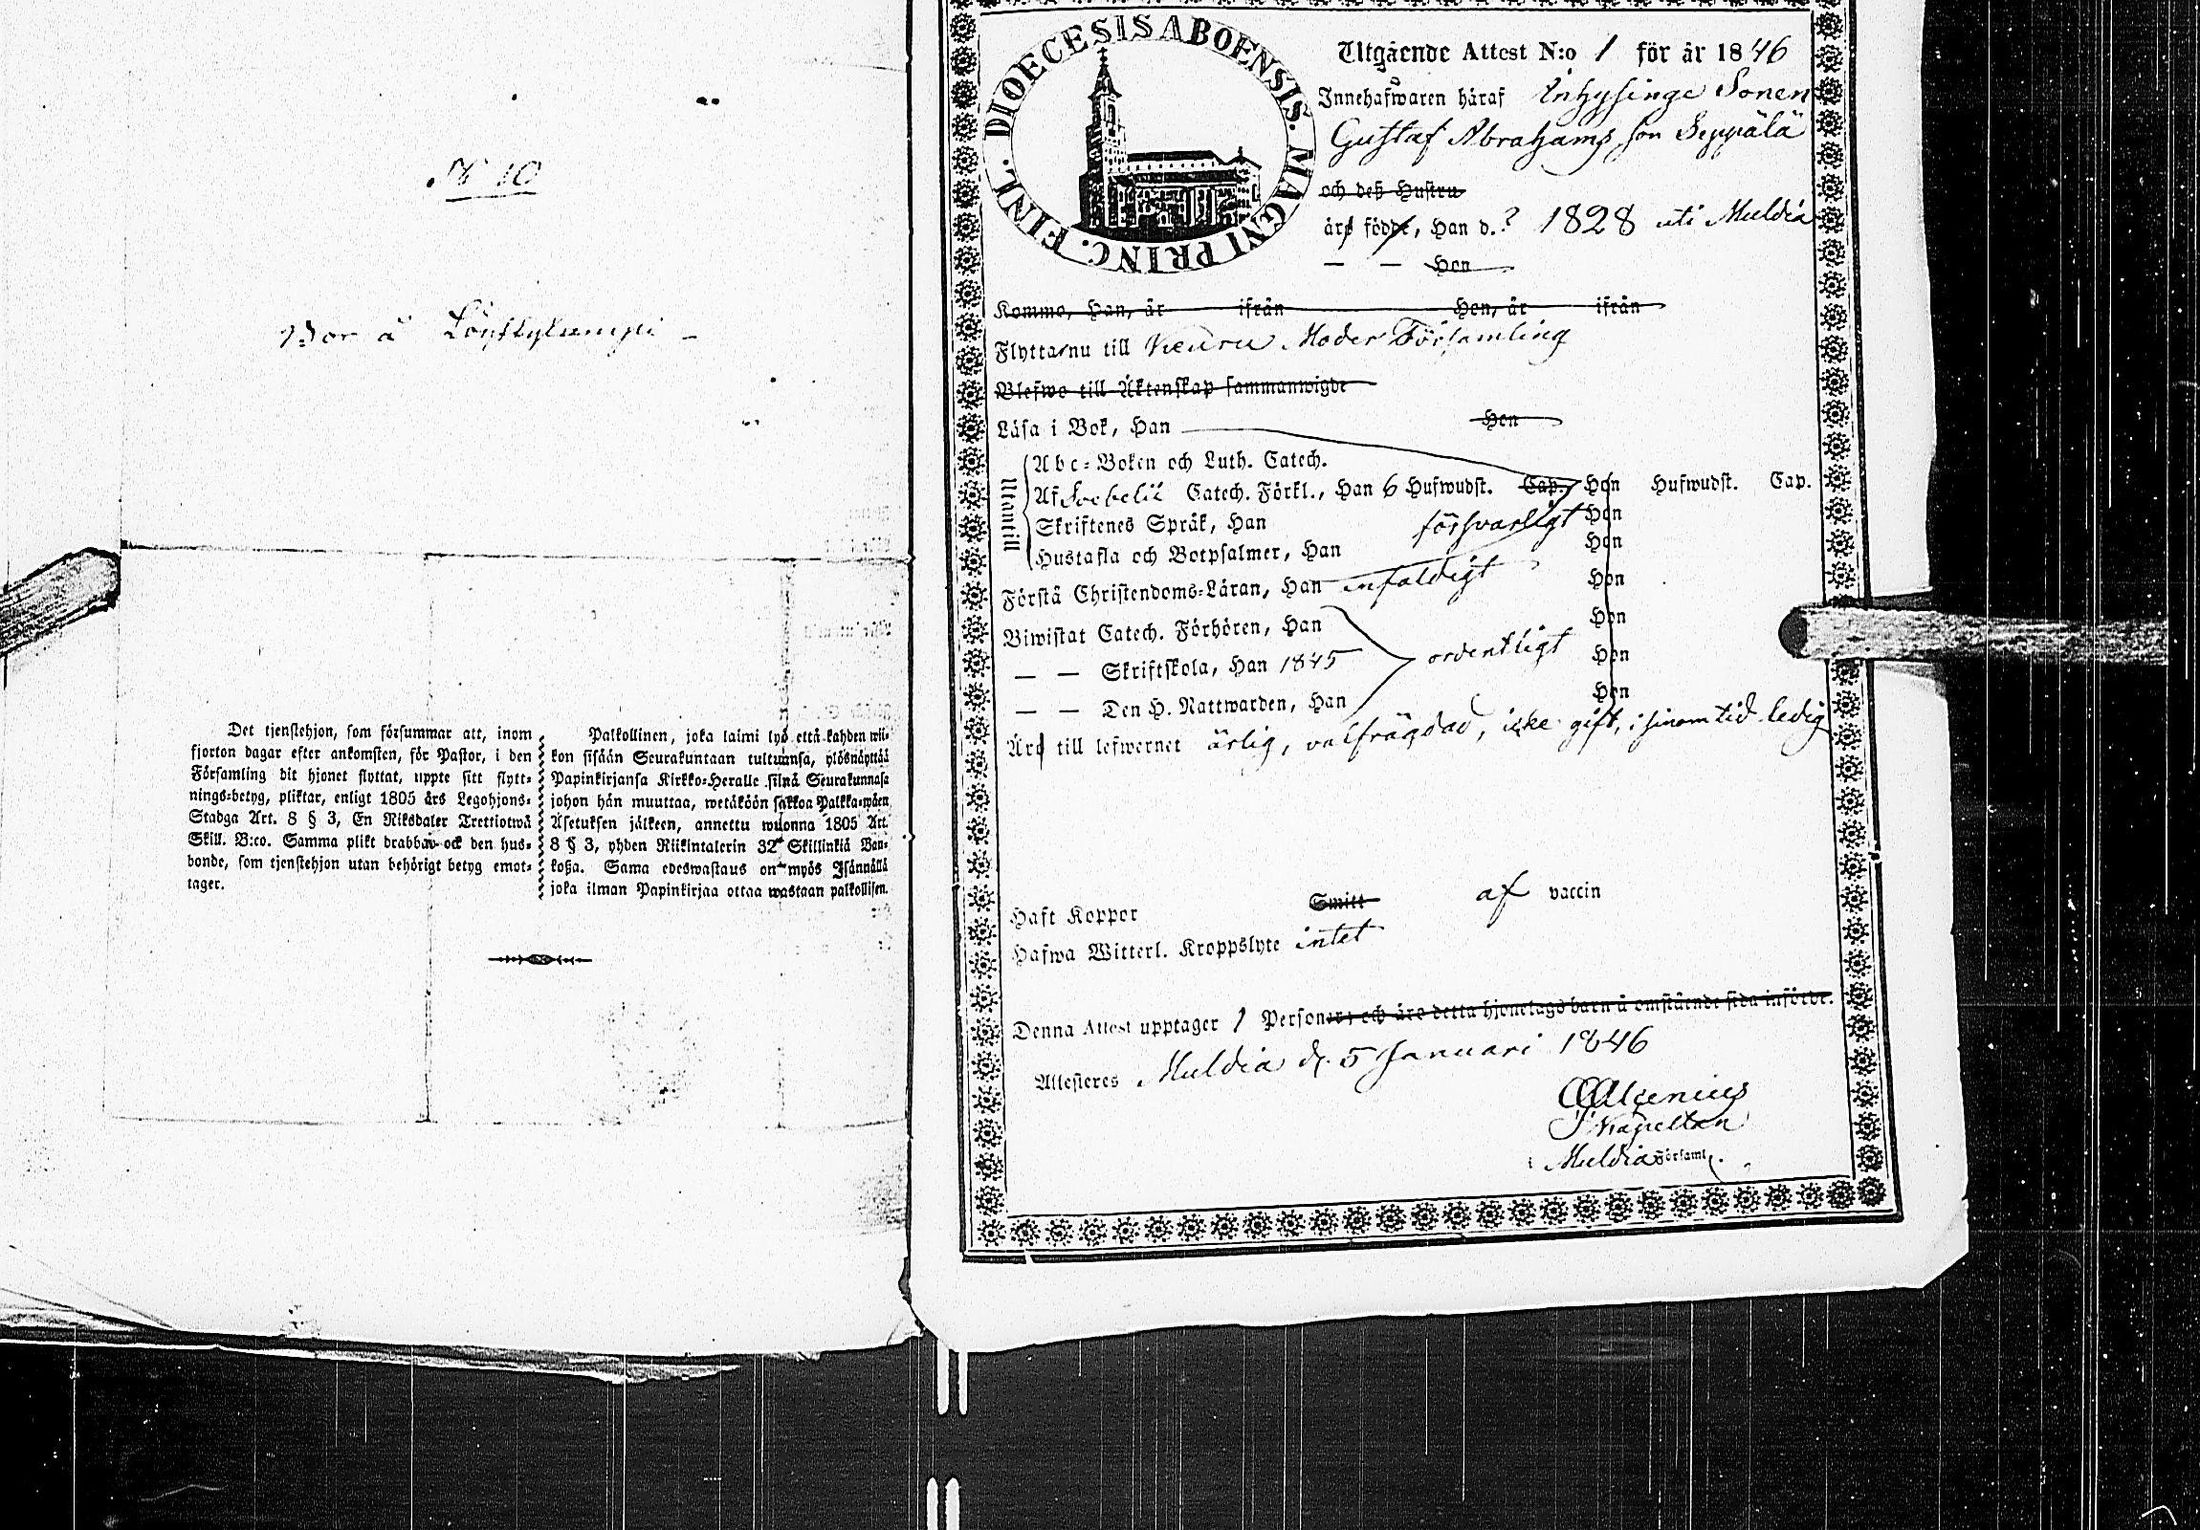 N 10
Bor å Löytlylampi
Det tjenstehjon, som försummar att, inom
fjorton dagar efter ankomsten, för Pastor, i den
Församling dit hjonet flyttat, uppte sitt flytt=
nings=betyg, pliktar, enligt 1805 års Legohjons=
Stadga Art. 8 § 3, En Riksdaler Trettiotwå
Skill. B:co. Samma plikt drabbar ock den hus=
bonde, som tjenstehjon utan behörigt betyg emot=
tager.
Palkollinen, joka laimi lyö että kahden wii=
kon sisään Seurakuntaan tultuansa, ylösnäyttää
Papinkirjansa Kirkko=Heralle siinä Seurakunnasa
johon hän muuttaa, wetäköön sakkoa Palkka=wäen
Asetuksen jälkeen, annettu wuonna 1805 Art.
8 § 3, yhden Riikintalerin 32 Skillinkiä Ban=
koßa. Sama edeswastaus on myös Isännällä
joka ilman Papinkirjaa ottaa wastaan palkollisen.
DIOECESIS ABOENSIS. MAGNI PRINC. FINL.
Utgående Attest N:o 1 för år 1846
Innehafwaren häraf Inhysinge Sonen
Gustaf Abrahams son Seppälä
och deß Hustru
äro födde, Han d. ? 1828 uti Muldia
— — Hon
Kommo, Han, år ifrån Hon, år ifrån
Flytta nu till Keuru Moder Församling
Blefwo till Äktenskap sammanwigde
Läsa i Bok, Han Hon
Utantill
Abc=Boken och Luth. Catech.
Af Svebelii Catech. Förkl., Han 6 Hufwudst. Cap. Hon Hufwudst. Cap.
Skriftenes Språk, Han försvarligt Hon
Hustafla och Botpsalmer, Han Hon
Förstå Christendoms=Läran, Han enfaldigt Hon
Biwistat Catech. Förhören, Han Hon
— — Skriftskola, Han 1845 ordentligt Hon
— — Den H. Nattwarden, Han Hon
Äro till lefwernet ärlig, välfrägdad, icke gift, i sinom tid ledig
Haft Koppor Smitt af vaccin
Hafwa Witterl. Kroppslyte intet
Denna Attest upptager 1 Personer; och äro detta hjonelags barn å omstående sida införde.
Attesteres Muldia d. 5 Januari 1846
Alcenius
Kapellan
i Muldia Församl.